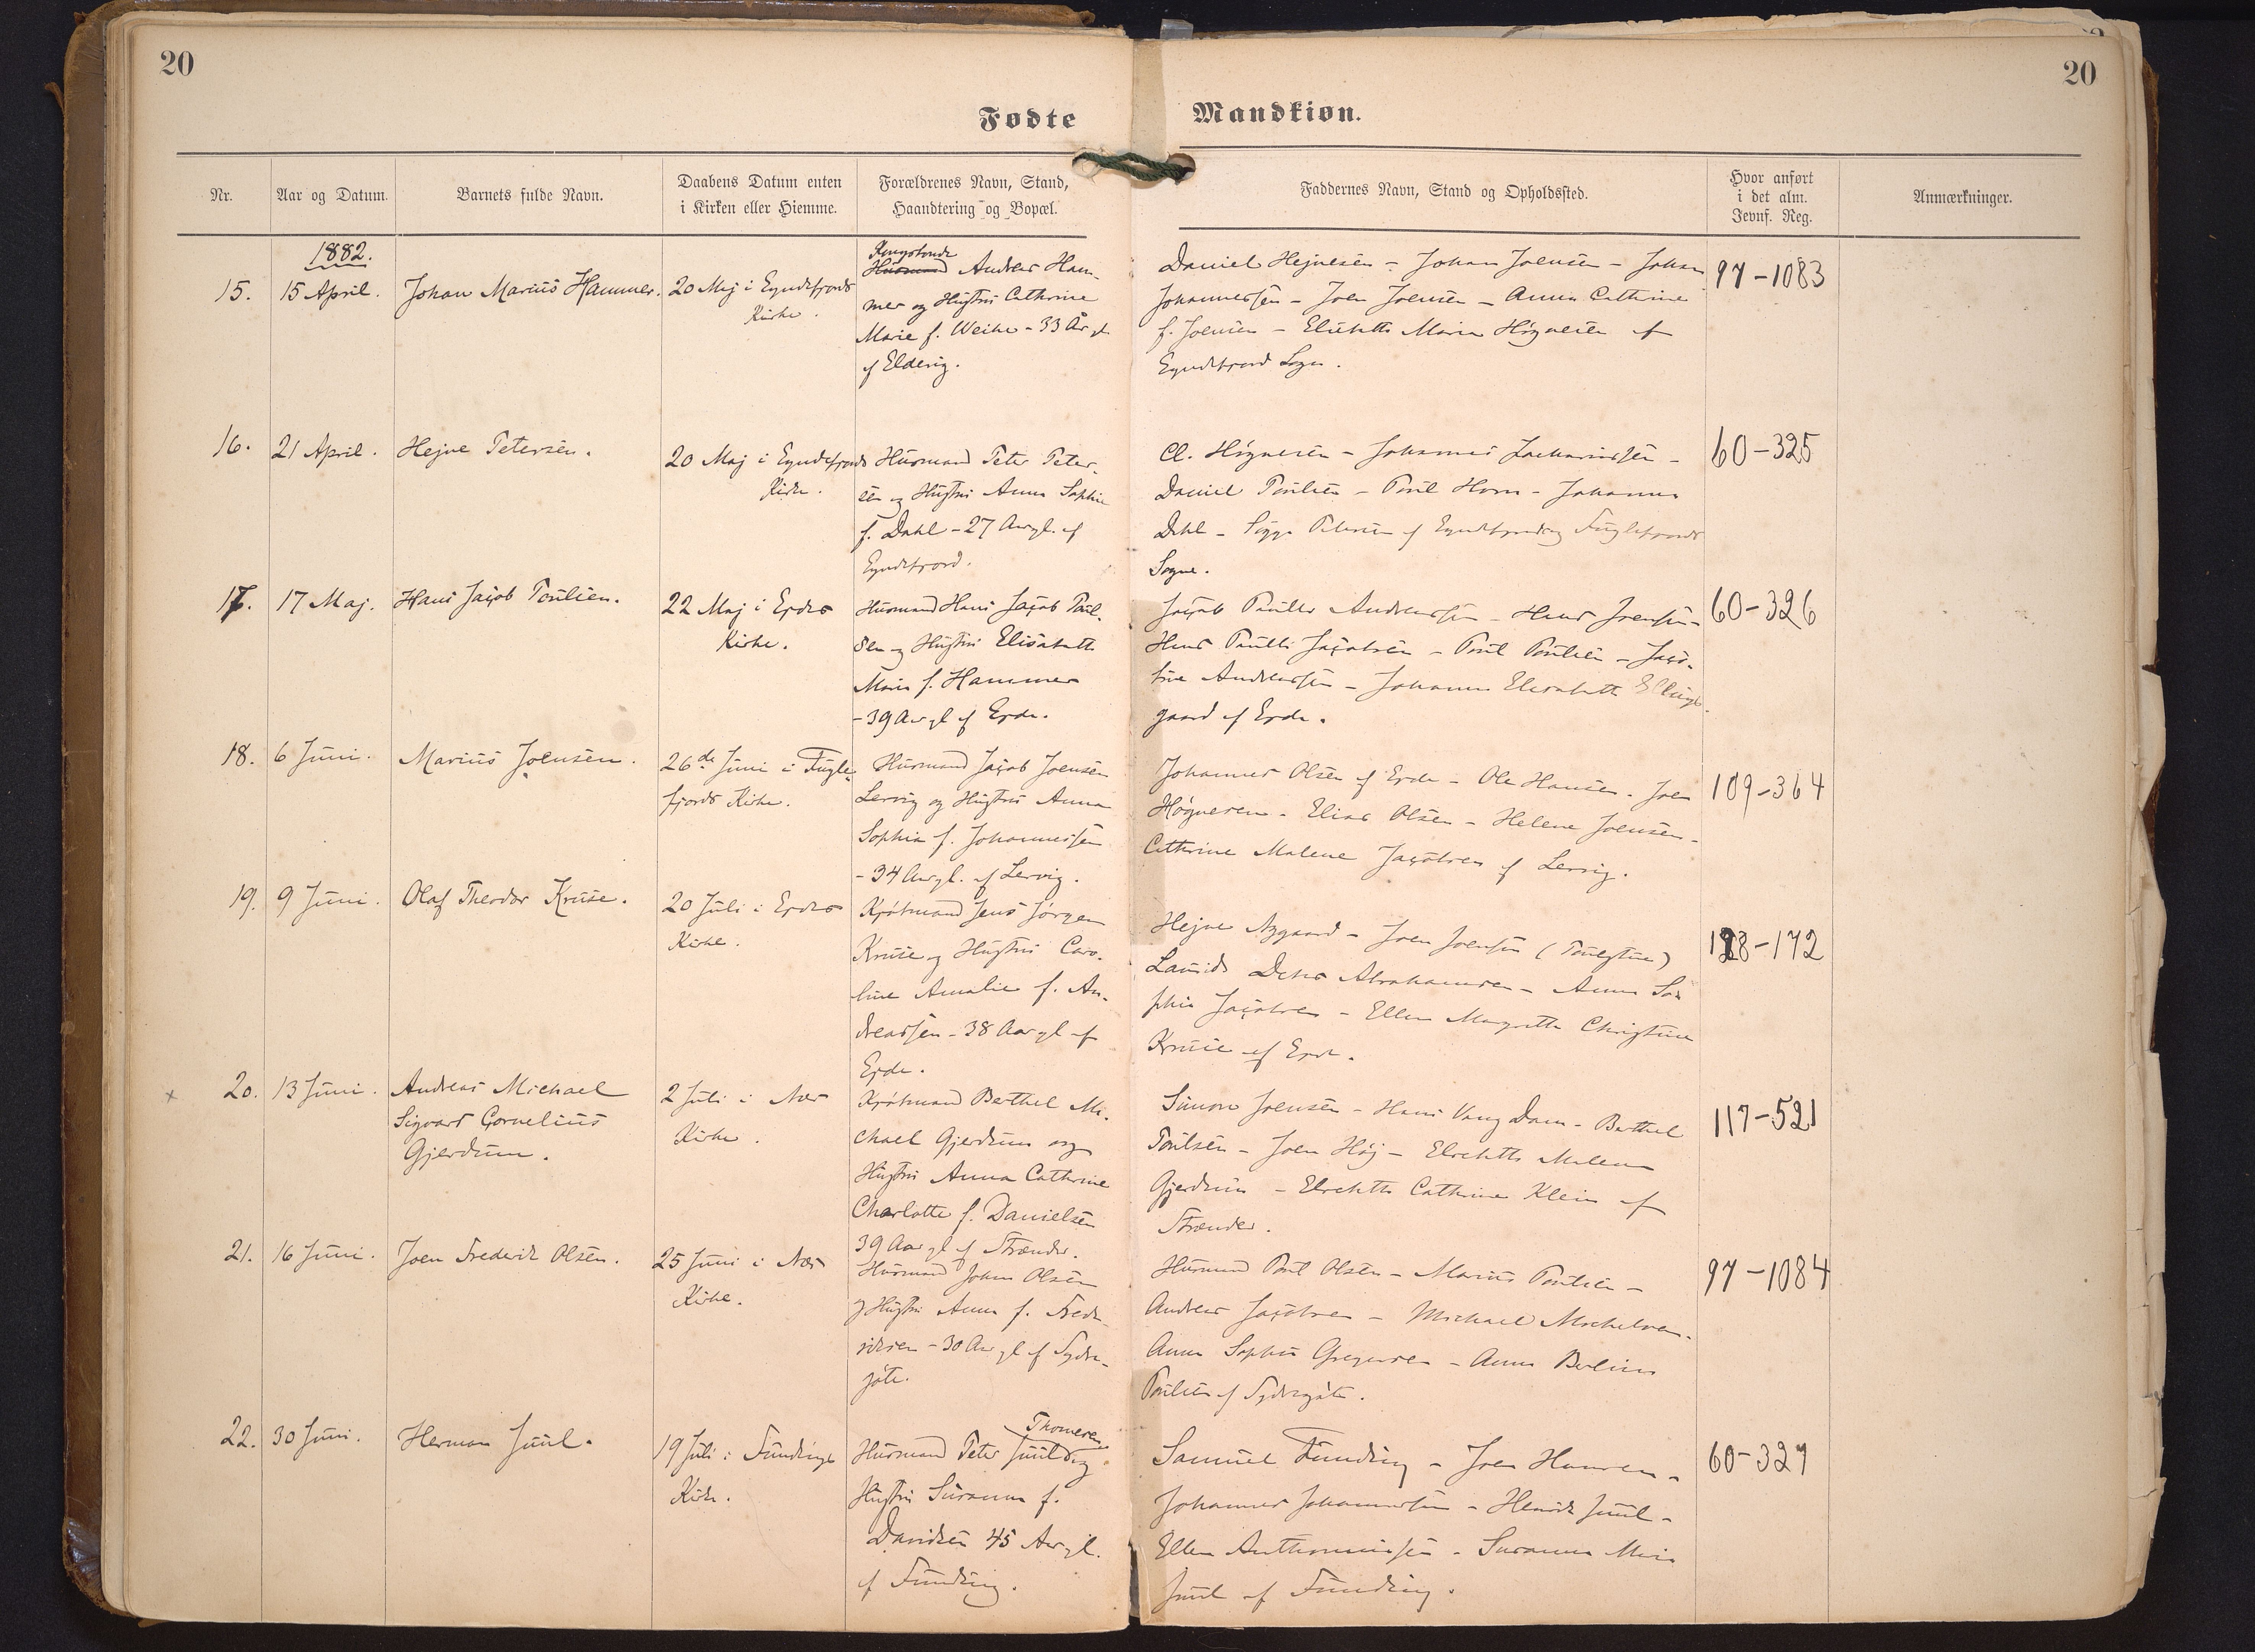 20
20
Fødte
Mandkiøn.
Nr.
Aar og Datum.
Barnets fulde Navn.
Daabens Datum enten
i Kirken eller Hiemme.
Forældrenes Navn, Stand,
Haandtering og Bopæl.
Faddernes Navn, Stand og Opholdssted.
Hvor anført
i det alm.
Jevnf. Reg.
Anmærkninger.
1882.
15.
15 April.
Johan Marius Hammer.
20 Maj i Eyndefjords
Kirke.
Kongsbonde
Husmand Andreas Ham-
mer og Hustru Cathrine
Marie f. Weihe - 33 År gl
af Eldevig.
Daniel Hejnesen - Johan Joensen - Johan
Johannessen - Joen Joensen - Anna Cathrine
f. Joensen - Elisabeth Maria Høgnesen af
Eyndefjord Sogn.
97-1083
16.
21 April.
Hejne Petersen.
20 Maj i Eyndefjords
Kirke.
Husmand Peter Peter-
sen og Hustru Anna Sophie
f. Dahl - 27 Aar gl. af
Eyndefjord.
Cl. Høgnesen - Johannes Zachariassen -
Daniel Poulsen - Poul Horn - Johanna
Dahl - Petersen af Eyndefjord og Fuglefjords
Sogne.
60-325
17.
17 Maj.
Hans Jacob Poulsen.
22 Maj i Ejdes
Kirke.
Husmand Hans Jacob Poul-
sen og Hustru Elisabeth
Maria f. Hammer
- 39 Aar gl af Ejde.
Jacob Andreassen - Hans Joensen -
Hans Jacobsen - Poul Poulsen - Jaco-
bine Andreassen - Johanna Elisabeth Ellings-
gaard af Ejde.
60-326
18.
6 Juni.
Marius Joensen.
26de Juni i Fugle-
fjords Kirke.
Husmand Jacob Joensen
Lervig og Hustru Anna
Sophia f. Johannessen
- 34 Aar gl. af Lervig.
Johannes Olsen af Ejde - Ole Hansen - Joen
Høgnesen - Elias Olsen - Helene Joensen -
Cathrine Malene Jacobsen af Lervig.
109-364
19.
9 Juni.
Olaf Theodor Kruse.
20 Juli i Ejdes
Kirke.
Kjøbmand Jens Jörgen
Kruse og Hustru Caro-
line Amalie f. An-
dreassen - 38 Aar gl af
Ejde.
Hejne Nygaard - Joen Joensen
Abrahamsen - Anna So-
phie Jacobsen - Ellen Margrethe Christine
Kruse af Ejde.
128-172
20.
13 Juni.
Andreas Michael
Sigvart Cornelius
Gjerdum.
2 Juli i Næs
Kirke.
Kjøbmand Berthel Mi-
chael Gjerdum og
Hustru Anna Cathrine
Charlotte f. Danielsen
39 Aar gl af Strænder.
Simon Joensen - Hans Dam - Berthel
Poulsen - Joen Høj - Elsebeth Malena
Gjerdum - Elsebeth Cathrine Klein af
Strænder.
117-521
21.
16 Juni.
Joen Frederik Olsen.
25 Juni i Næs
Kirke.
Husmand Johan Olsen
og Hustru Anna f. Frede-
riksen - 30 Aar gl af Sydre-
gøte.
Husmand Poul Olsen - Marius Poulsen -
Andreas Jacobsen - Michael Michelsen -
Anna Sophie Gregersen - Anna
Poulsen af Sydregøte.
97-1084
22.
30 Juni.
Herman Juul.
19 Juli i Fundings
Kirke.
Thomsen
Husmand Peter Juul og
Hustru Susanna f.
Davidsen 45 Aar gl.
af Funding.
Samuel Funding - Joen Hansen -
Johannes Johannessen - Henrik Juul -
Ellen Anthoniussen - Susanna Maria
Juul af Funding.
60-327